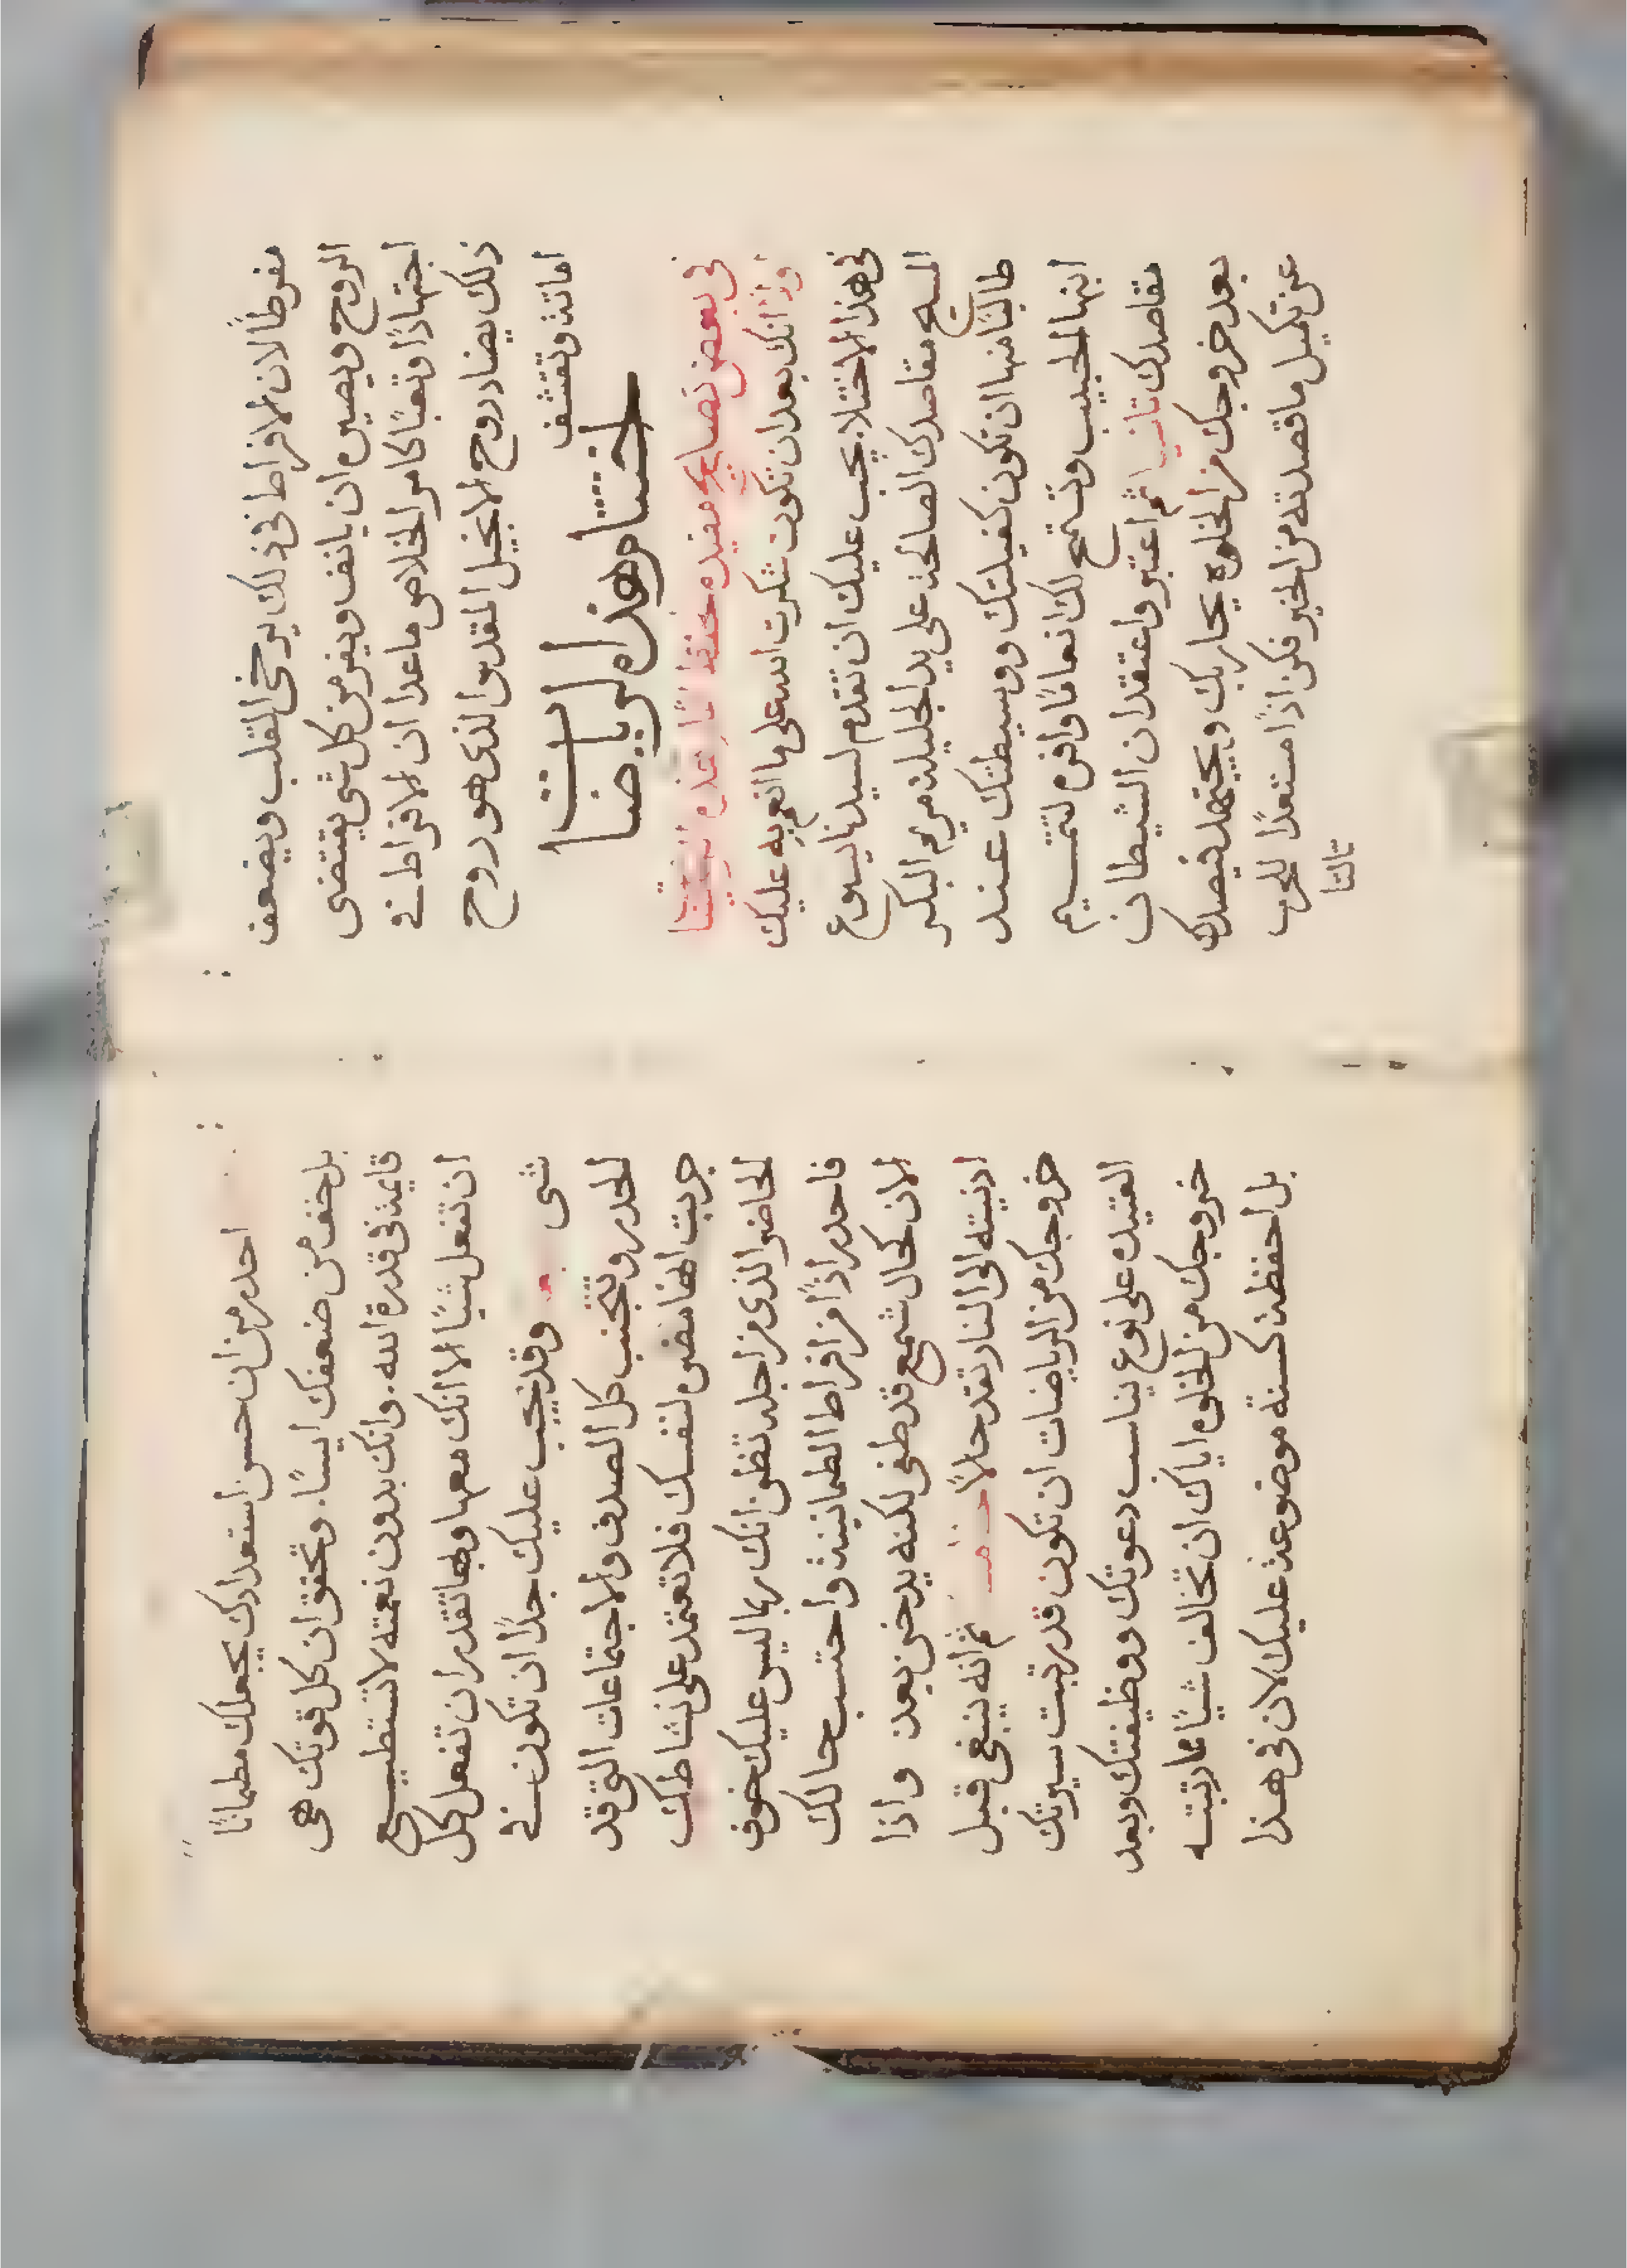 مفرطًا لان الافراط فى ذلك يوخى القلب ويضعف
الروح ويصيره ان يانف وينفر من كل شى يقتضى
اجتهادًا وتعبًا كامر الخلاص ماعدا ان الافراط فى
ذلك يضادد روح الانجيل المقدس الذى هو روح
اماتة وتقشف
اختتام هذه الرياضات
فى بعض نصايح مفيده
اولًا انك بعد ان تكون شكرت الله على ما انعم به عليك
فى هذا الاختلا. يجب عليك ان تقدم لسيدنا يسوع
المسيح مقاصدك الصالحة على يد الجليلة مريم البكر
طالبًا منها ان تكون كفيلتك ووسيطتك عند
ابنها الحبيب وتستمح لك انعامًا وافره لتتميم
مقاصدك ثانيا ثم اعتبر واعتقد ان الشيطان
بعد خروجك من الخلوة يحاربك ويجتهد فيصدك
عن تكميل ما قصدته من الخير فكن اذًا مستعدًا للحرب
ثالثا
احدر من ان حسن استعدادك يجعلك مطمانًا
بل خف من ضعفك ايسًا. وتحقق ان كل قوتك هى
قايمة فى قدرة الله. وانك بدون نعمته لا تستطيع
ان تفعل شيًا الا انك معها وبها تقدر ان تفعل كل
شى وقد يجب عليك جدًا ان تكون فى
الحدر وتتجنب كل الصدف والاجتماعات التى قد
جربت انها مضره لنفسك فلا تعتمد على نشاطك
الحاضر الذى من اجله تظن انك بها ليس عليك خوف
فاحدر اذًا من افراط الطمانينة واحتسب حالك
الان كحال شمع قد طفى لكنه يدخن بعد واذا
ادنيته الى النار تقد حالًا ثم انه ينبغى قبل
خروجك من الرياضات ان تكون قد رتبت سيرتك
العتيده على نوع يناسب دعوتك ووظيفتك وبعد
خروجك من الخلوه اياك ان تخالف شيًا مما رتبته
بل احفظه كسنة موضوعة عليك لان فى هذا